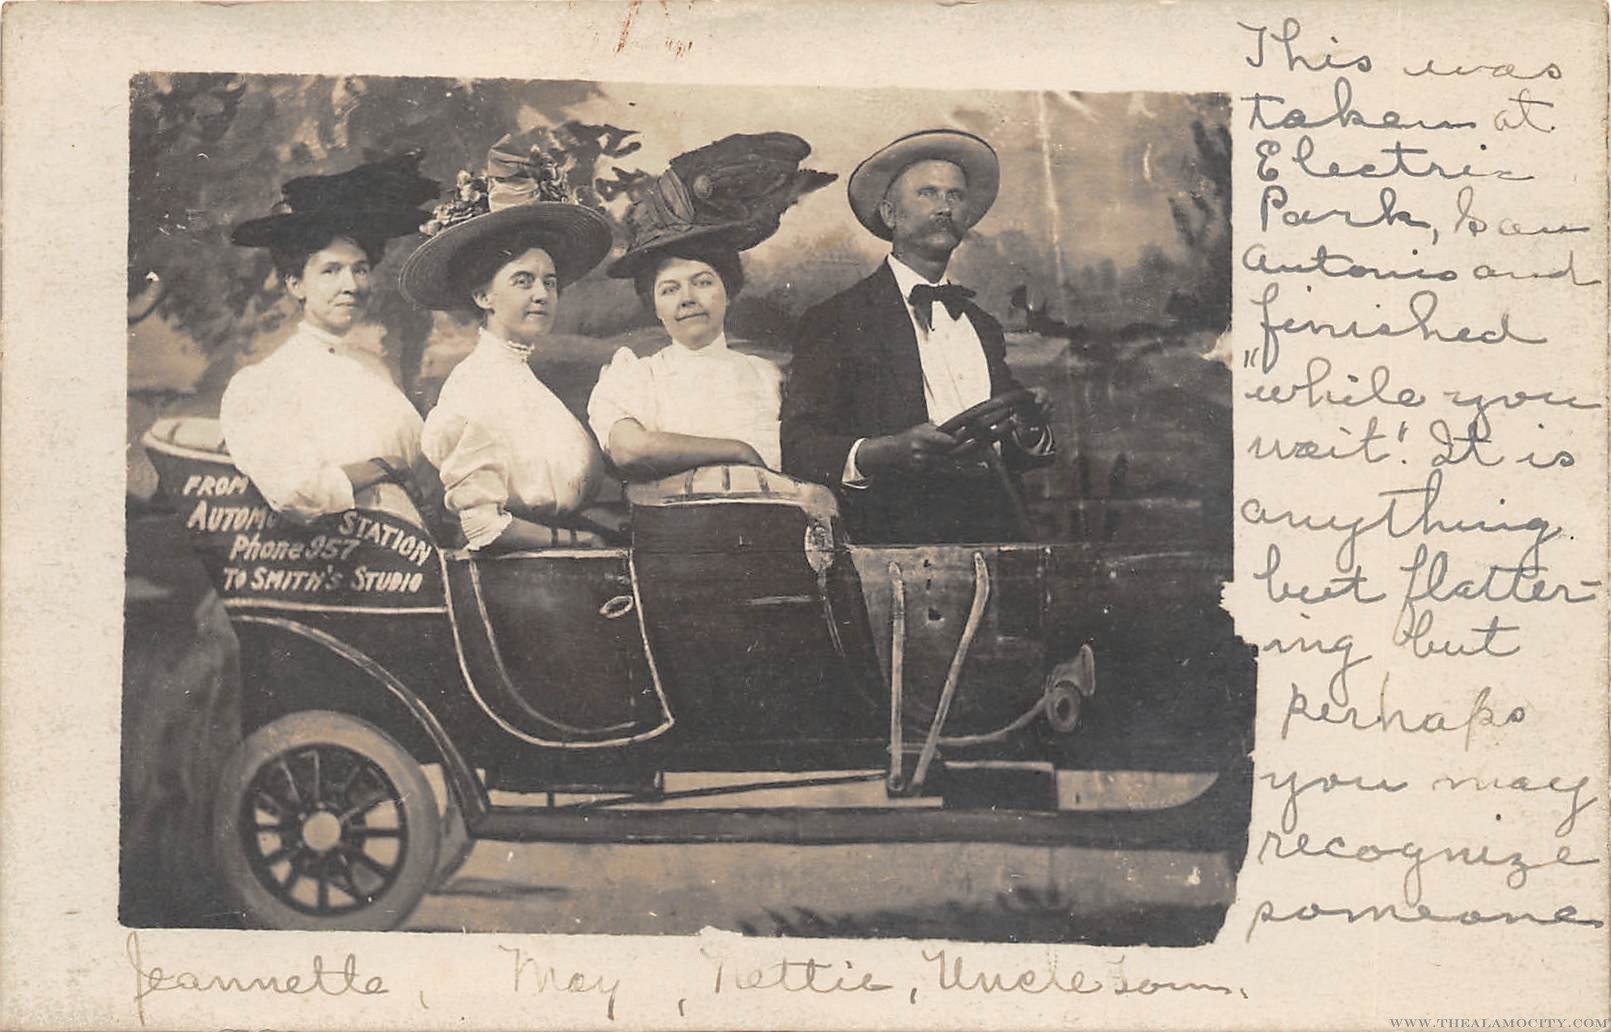 This was
taken at
Electric
Park, San
Antonio and
finished
"while you
wait". It is
anything
but flatter-
ing but
perhaps
you may
recognize
someone
FROM
STATION
Phone 957
TO SMITH'S STUDIO
Jeannette, May, Nettie, Uncle Tom.
WWW.THEALAMOCITY.COM